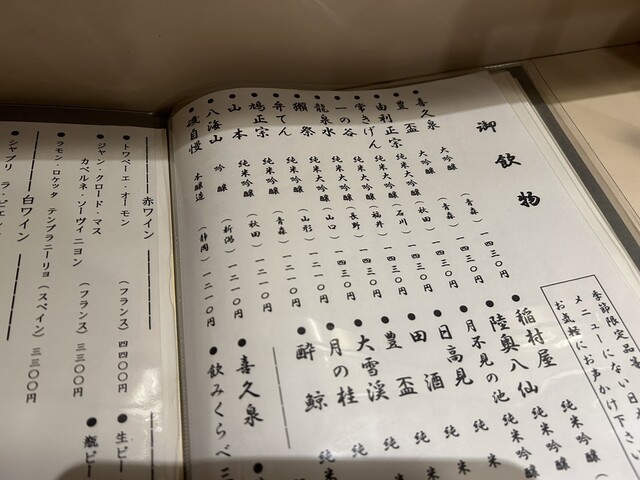 御飲物
季節限定品等
メニューにない日
お気軽にお声かけ下さい
●喜久泉 大吟醸 (青森) 一四三〇円
●豊盃 大吟醸 (青森) 一四三〇円
●由利正宗 純米大吟醸 (秋田) 一四三〇円
●常きげん 純米大吟醸 (石川) 一四三〇円
●一の谷 純米大吟醸 (福井) 一四三〇円
●龍泉水 純米大吟醸 (長野) 一四三〇円
●獺祭 純米大吟醸 (山口) 一四三〇円
●弁てん 純米吟醸 (山形) 一二一〇円
●鳩正宗 純米吟醸 (青森) 一二一〇円
●山本 純米吟醸 (秋田) 一二一〇円
●八海山 吟醸 (新潟) 一二一〇円
●磯自慢 本醸造 (静岡) 一二一〇円
●稲村屋 純米吟醸
●陸奥八仙 純米吟醸
●月不見の池 純米
●日高見 純米
●田酒 純米
●豊盃 純
●大雪渓 純
●月の桂 純米
●酔鯨 純米
●喜久泉
●飲みくらべ三
赤ワイン
●トワベーエ・オーモン (フランス) 四四〇〇円
●ジャン・クロード・マス
カベルネ・ソーヴィニヨン (フランス) 三三〇〇円
●ラモン・ロケッタ テンプラニーリョ (スペイン) 三三〇〇円
白ワイン
●シャブリ ラ・ピエレ
●生ビー
●瓶ビー